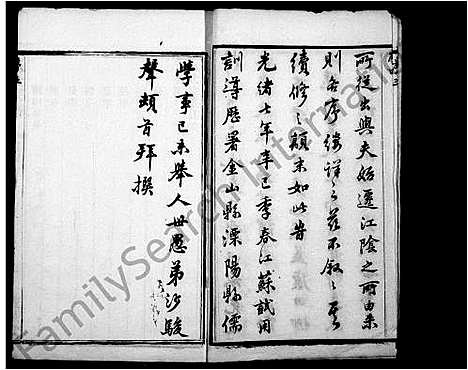 所從出與夫始遷江陰之所由來
則各序綜詳之茲不敘敘其
續修之顛末如此皆
光緒七年辛巳季春江蘇試用
訓導歷署金山縣溧陽縣儒
學事己未舉人世愚弟沙駿
聲頓首拜撰
FamilySearch International